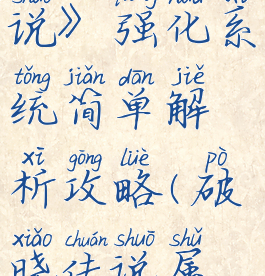 说》 强化系
tǒng jiǎn dān jiě
统简单解
xī gōng lüè pò
析攻略(破
xiǎo chuán shuō shǔ
晓传说属